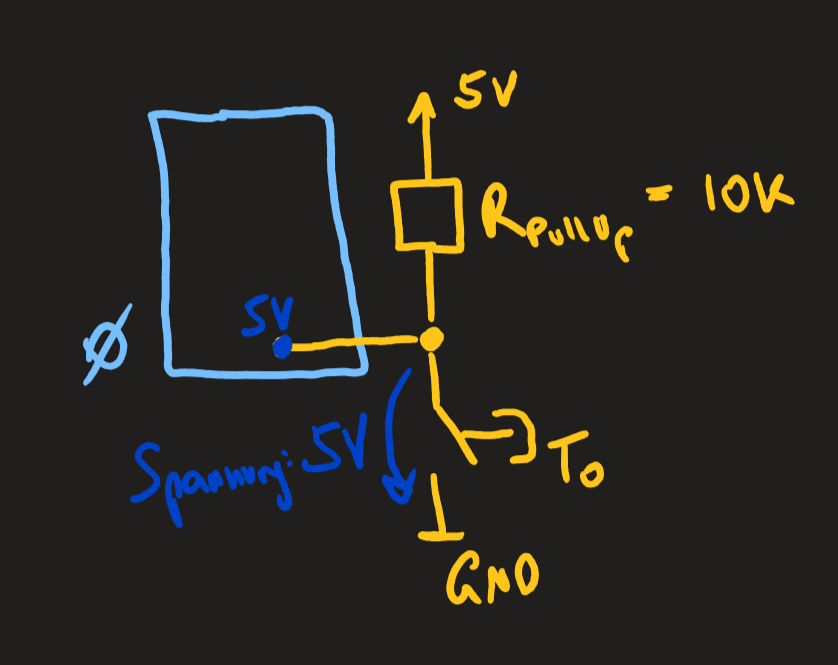 5V
R Pullup = 10K
5V
Ø
Spannung: 5V
T0
GND